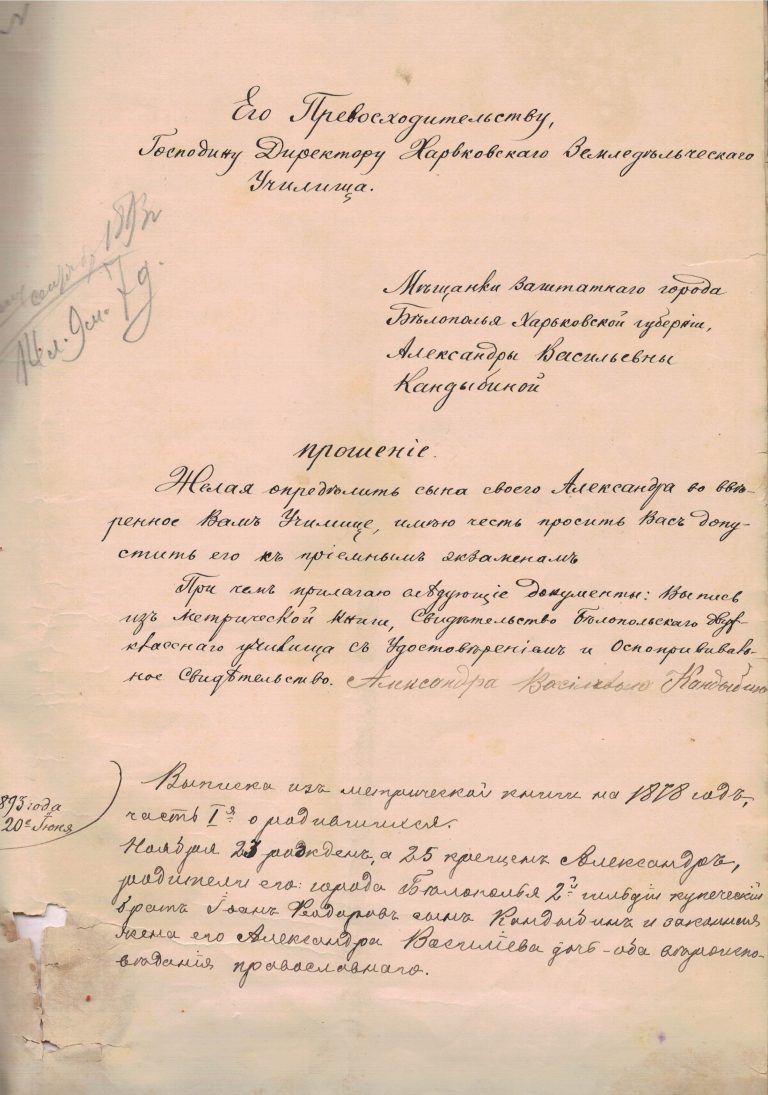 Его Превосходительству,
Господину Директору Харьковскаго Земледѣльческаго
Училища.
1893 г
14 л. 9 м. 7 д.
Мѣщанки заштатнаго города
Бѣлополья Харьковской губернiи,
Александры Васильевны
Кандыбиной
прошенiе.
Желая опредѣлить сына своего Александра во ввѣ-
ренное Вамъ Училище, имѣю честь просить Васъ допу-
стить его къ прiемнымъ экзаменамъ
При чемъ прилагаю слѣдующiе документы: Выпись
изъ Метрической Книги, Свидѣтельство Бѣлопольскаго двух-
класснаго училища съ Удостовѣренiемъ и Оспопрививаль-
ное Свидѣтельство. Александра Кандыбина
893 года
20го Iюня
Выписка изъ метрической книги на 1878 годъ,
часть Iя о родившихся.
Ноября 23 рожденъ, а 25 крещенъ Александръ,
родители его: города Бѣлополья 2й гильдiи купеческiй
братъ Iоанъ Феодоровъ сынъ Кандыбинъ и законная
жена его Александра Василiева дочь – оба вѣроиспо-
вѣданiя православнаго.